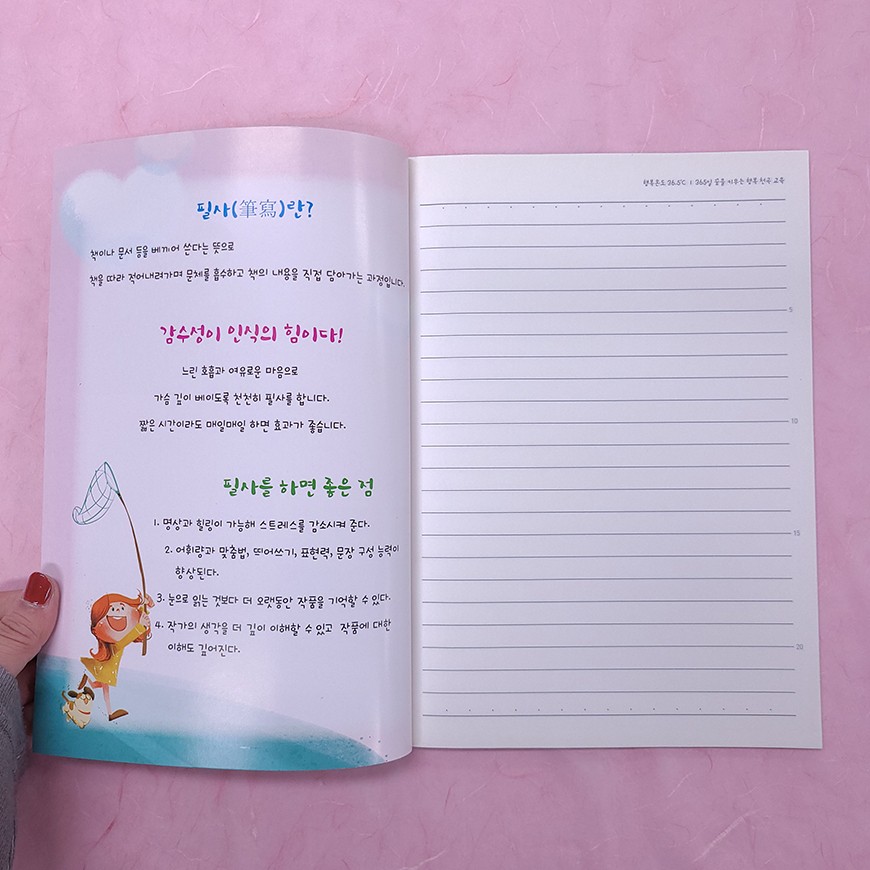 필사(筆寫)란?
책이나 문서 등을 베끼어 쓴다는 뜻으로
책을 따라 적어내려가며 문체를 흡수하고 책의 내용을 직접 담아가는 과정입니다.
감수성이 인식의 힘이다!
느린 호흡과 여유로운 마음으로
가슴 깊이 베이도록 천천히 필사를 합니다.
짧은 시간이라도 매일매일 하면 효과가 좋습니다.
필사를 하면 좋은 점
1. 명상과 힐링이 가능해 스트레스를 감소시켜 준다.
2. 어휘량과 맞춤법, 띄어쓰기, 표현력, 문장 구성 능력이
향상된다.
3. 눈으로 읽는 것보다 더 오랫동안 작품을 기억할 수 있다.
4. 작가의 생각을 더 깊이 이해할 수 있고 작품에 대한
이해도 깊어진다.
행복온도 36.5℃ | 365일 꿈을 키우는 행복 교육
5
10
15
20